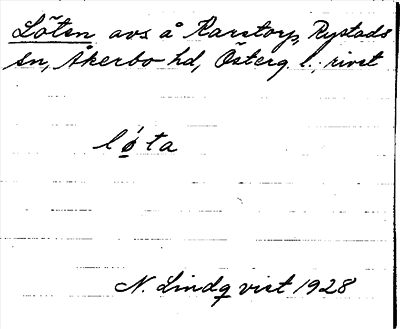 Löten avs å Karstorp, Rystads
sn, Åkerbo hd, Österg. l.; rivet
lo̲´ta
N. Lindqvist 1928